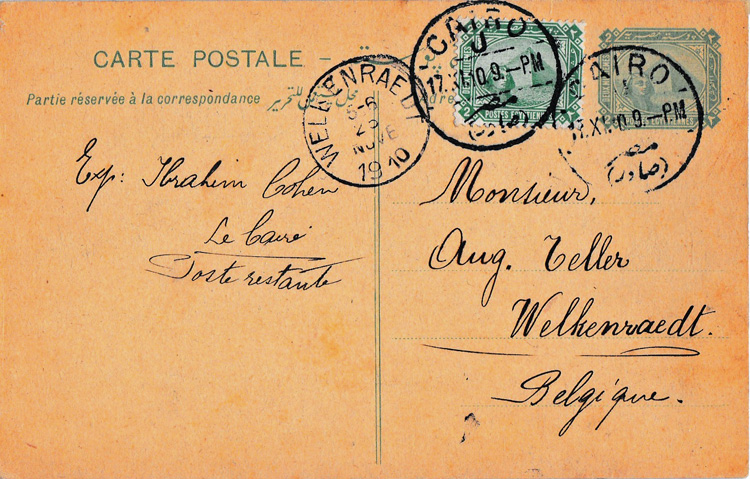 CARTE POSTALE
Partie réservée à la correspondance
Exp: Ibrahim Cohen
Le Caire
Poste restante
WELKENRAEDT
NOVE
1910
CAIRO
17.XI.10 9.-PM
مصر
POSTES EGYPTIENNES
AIRO
17.XI.10 9.-PM
مصر
Monsieur,
Aug. Teller
Welkenraedt.
Belgique.